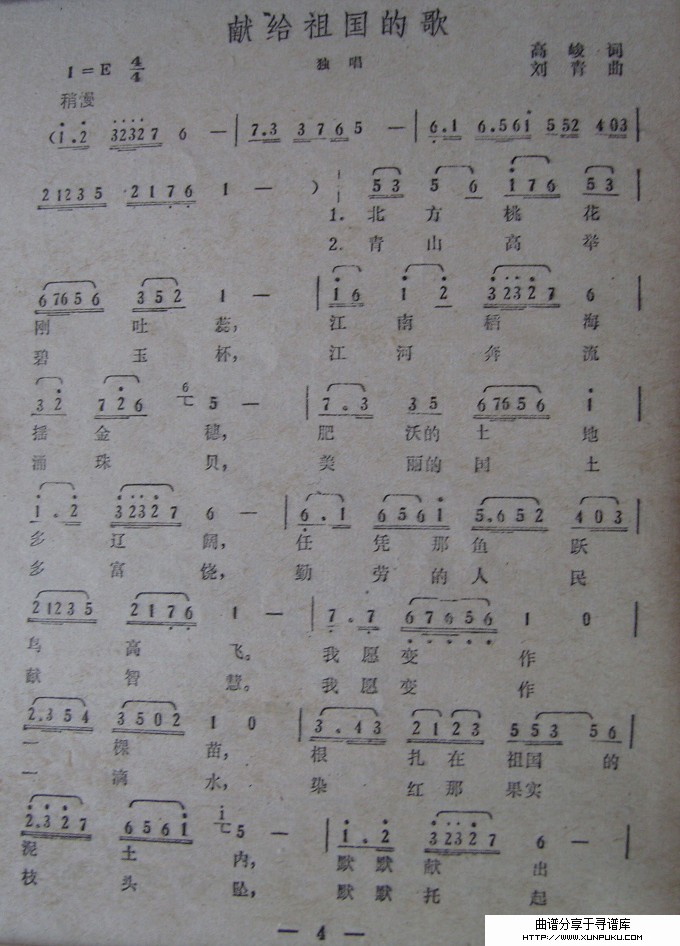 献给祖国的歌
1=E 4/4 独唱 高峻词
刘青曲
稍慢
(1.2 32327 6 — | 7.3 3765 5 — | 6.1 6.561 552 403 |
21235 2176 1 — ) | 53 5 6 176 53 |
1. 北方桃花
2. 青山高举
67656 352 1 — | 16 1 2 32327 6
刚吐蕊, 江南稻海
碧玉杯, 江河奔流
32 726 5 — | 7.3 35 67656 1
摇金穗, 肥沃的土地
涌珠贝, 美丽的国土
1.2 32327 6 — | 6.1 6561 5.652 403
多辽阔, 任凭那鱼跃
多富饶, 勤劳的人民
21235 2176 1 — | 7.7 67656 1 0 |
鸟高飞。 我愿变作
献智慧。 我愿变作
2.354 3502 1 0 | 3.43 2123 553 56 |
一棵苗, 根扎在祖国的
一滴水, 染红那果实
2.327 6561 5 — | 1.2 32327 6 — |
泥土内, 默默献出
枝头坠, 默默托起
— 4 —
曲谱分享于寻谱库
HTTP://WWW.XUNPUKU.COM